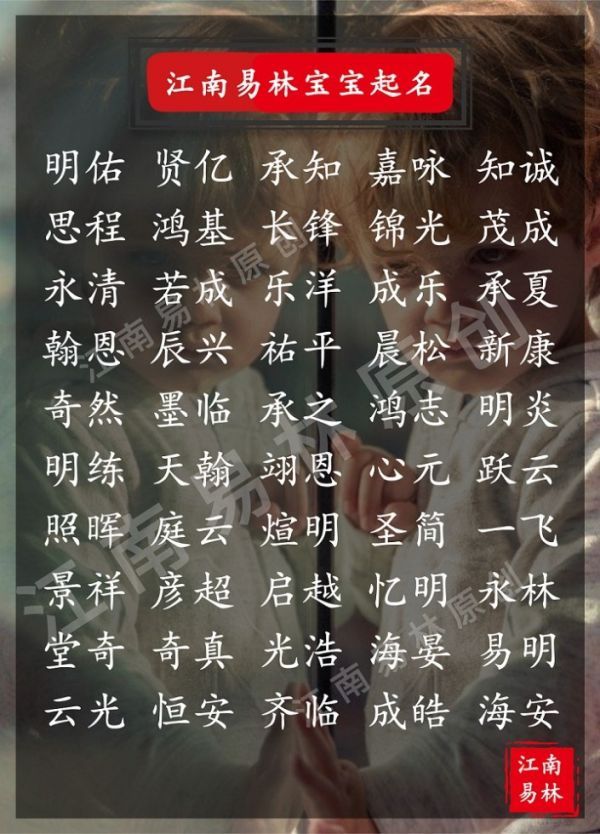 江南易林宝宝起名
明佑 贤亿 承知 嘉咏 知诚
思程 鸿基 长锋 锦光 茂成
永清 若成 乐洋 成乐 承夏
翰恩 辰兴 祐平 晨松 新康
奇然 墨临 承之 鸿志 明炎
明练 天翰 翊恩 心元 跃云
照晖 庭云 煊明 圣简 一飞
景祥 彦超 启越 忆明 永林
堂奇 奇真 光浩 海晏 易明
云光 恒安 齐临 成皓 海安
江南易林原创
江南易林原创
江南易林原创
江南
易林